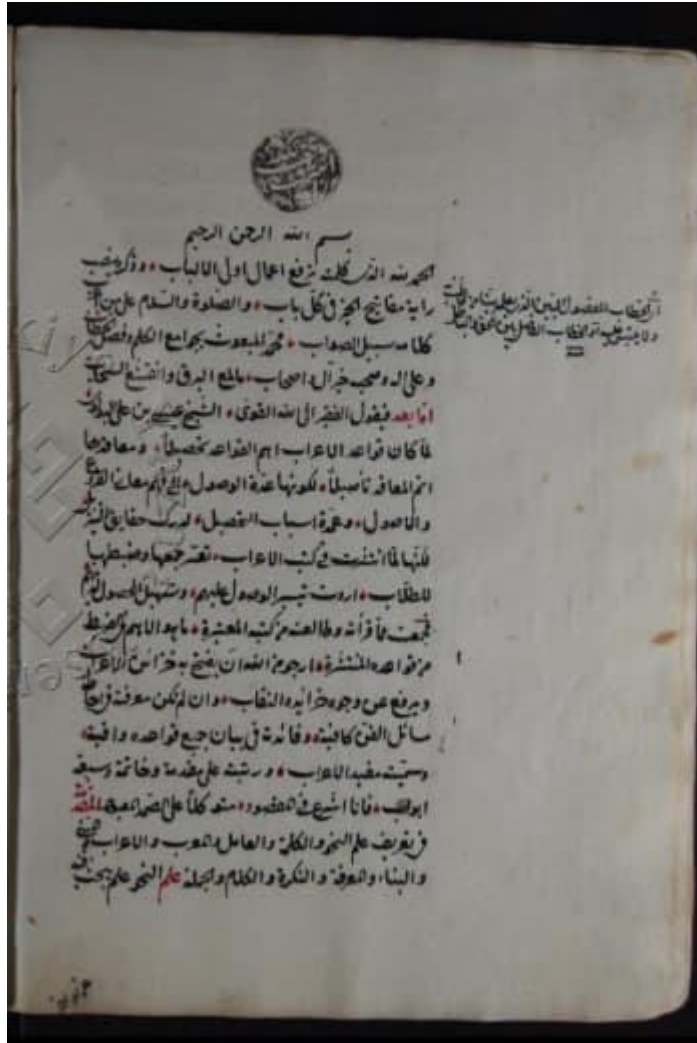 بسم الله الرحمن الرحيم
الحمد لله الذى كلمة ترفع اعمال اولى الالباب وذكره ينصب
راية مفاتيح الخير فى كل باب والصلوة والسلام على من
كلامه سبيل الصواب محمد المبعوث بجوامع الكلم وفصل الخطاب
وعلى اله وصحبه خير آل واصحاب مالمع البرق وانقشع السحاب
اما بعد فيقول الفقير الى الله القوى الشيخ عيسى بن على
لما كان قواعد الاعراب اهم القواعد تحصيلا ومعاقدها
اتم المعاقد تأصيلا لكونها عدة الوصول الى فهم معانى
والاصول وعمدة اسباب التحصيل لدرك حقايق
لكنها لما انتشرت فى كتب الاعراب تعسر جمعها وضبطها
للطلاب اردت تيسير الوصول عليهم وتسهيل الحصول
فجمعت مما قرأته وطالعته من كتبه المعتبرة ما هو الاهم فى الضبط
من قواعده المنتشرة ارجو من الله ان يفتح به خزائن الاعراب
ويرفع عن وجوه خرائده النقاب وان لم تكن معرفة
مسائل الفن كافية وفائدة فى بيان جميع قواعده وافية
وسميته مفيد الاعراب ورتبته على مقدمة وخاتمة وسبعة
ابواب فانا اشرع فى المقصود متوكلا على الصمد المعبود المقدمة
فى تعريف علم النحو والكلمة والعامل والمعرب والاعراب
والبناء والمعرفة والنكرة والكلام والجملة علم النحو علم يبحث
اى الخطاب المفصول المبين الذى يعلمه من يخاطب
ولا يلتبس عليه او الخطاب الفاصل بين الحق والباطل